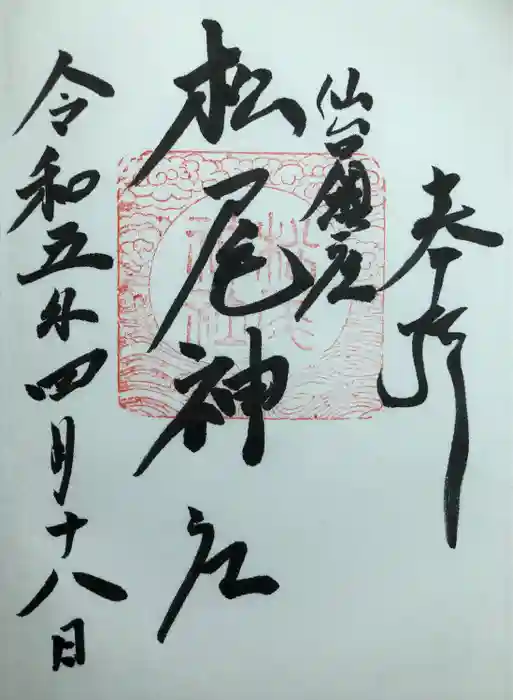 奉拝
仙台領社
松尾神社
令和五年四月十八日
松尾神社